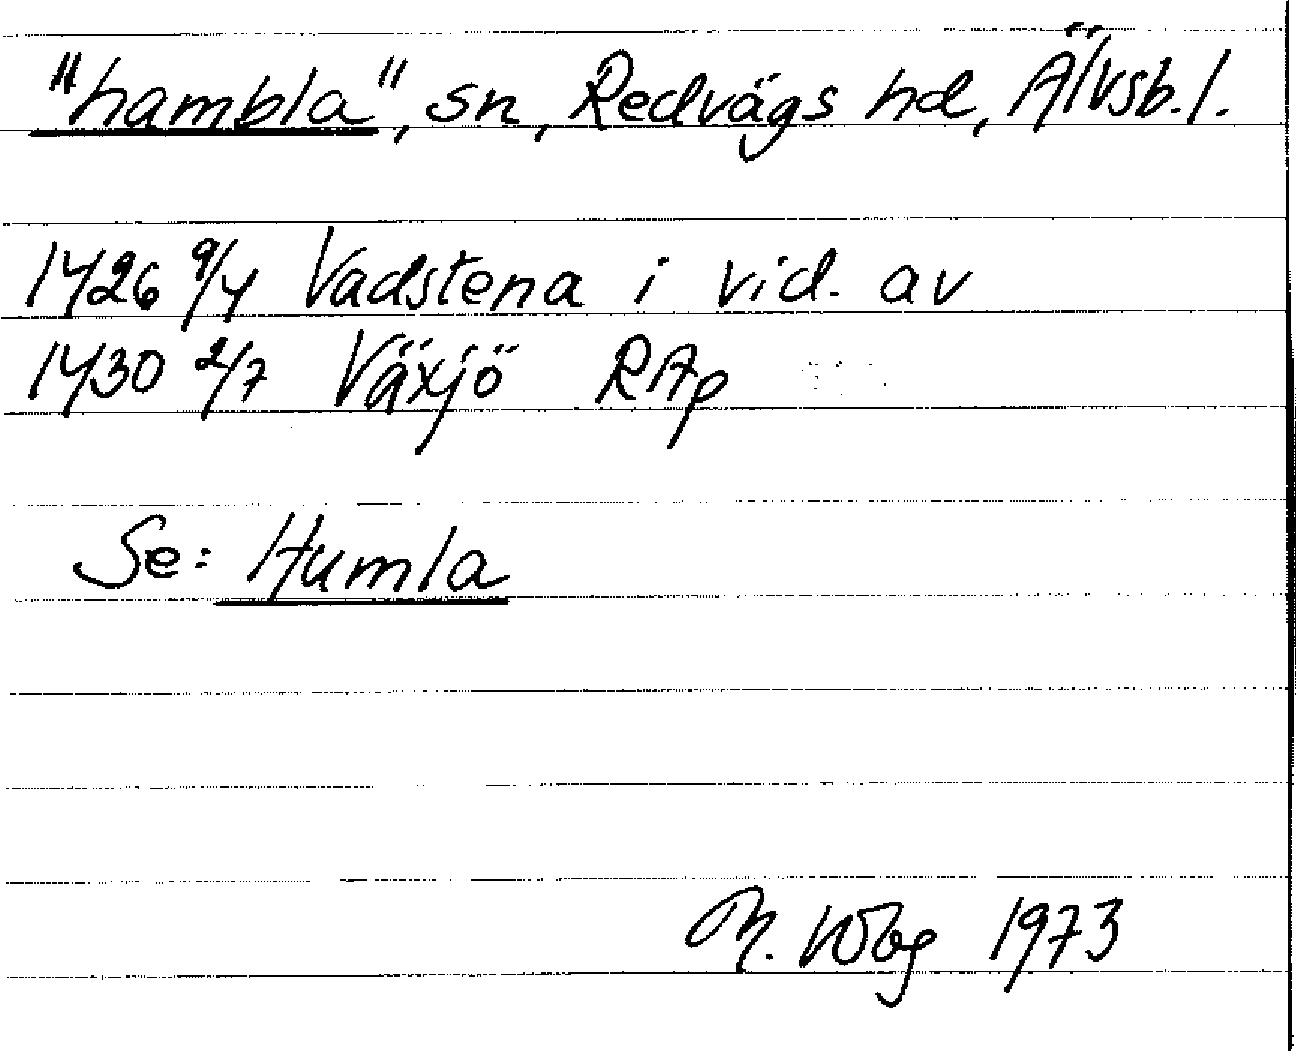 "hambla", sn, Redvägs hd, Älvsb. l.
1426 9/4 Vadstena i vid. av
1430 2/7 Växjö RAp
Se: Humla
M. Wbg 1973